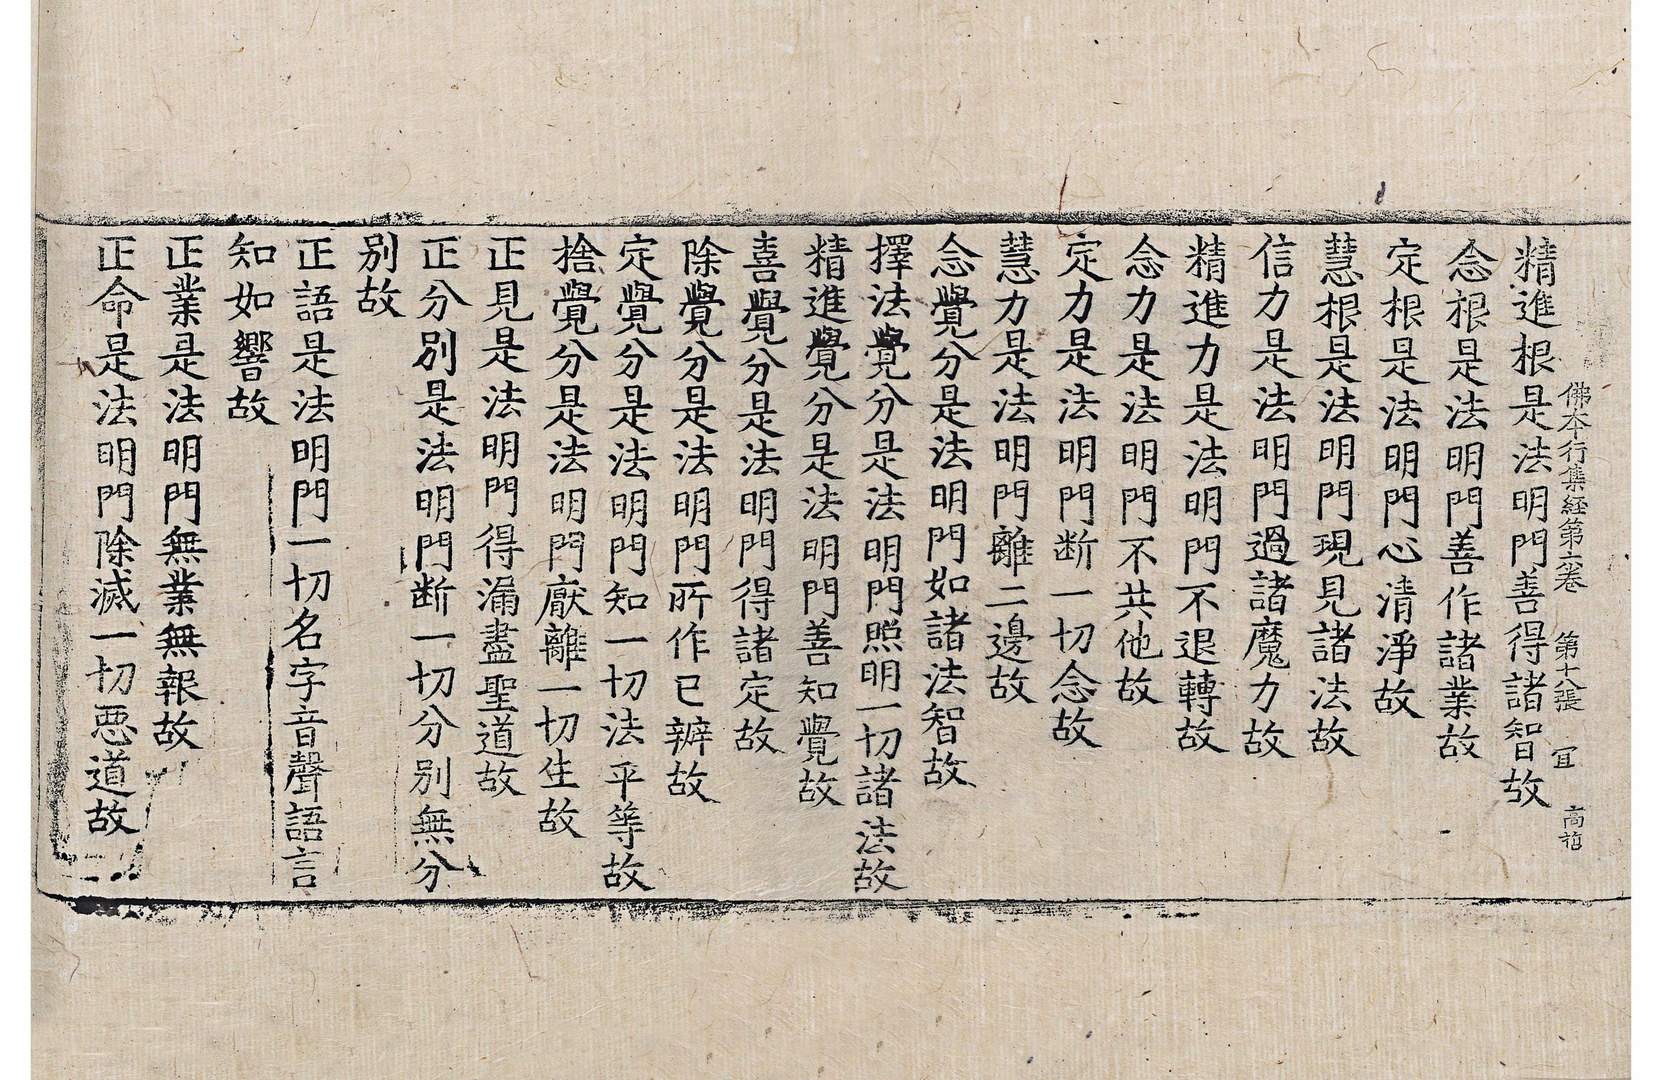 佛本行集経第六卷 第十八張 冝
精進根是法明門善得諸智故
念根是法明門善作諸業故
定根是法明門心清淨故
慧根是法明門現見諸法故
信力是法明門過諸魔力故
精進力是法明門不退轉故
念力是法明門不共他故
定力是法明門断一切念故
慧力是法明門離二邊故
念覺分是法明門如諸法智故
擇法覺分是法明門照明一切諸法故
精進覺分是法明門善知覺故
喜覺分是法明門得諸定故
除覺分是法明門所作已辦故
定覺分是法明門知一切法平等故
捨覺分是法明門厭離一切生故
正見是法明門得漏盡聖道故
正分別是法明門断一切分別無分
別故
正語是法明門一切名字音聲語言
知如響故
正業是法明門無業無報故
正命是法明門除滅一切惡道故